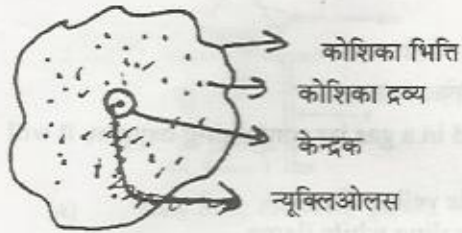 कोशिका भित्ति
कोशिका द्रव्य
केन्द्रक
न्यूक्लिओलस